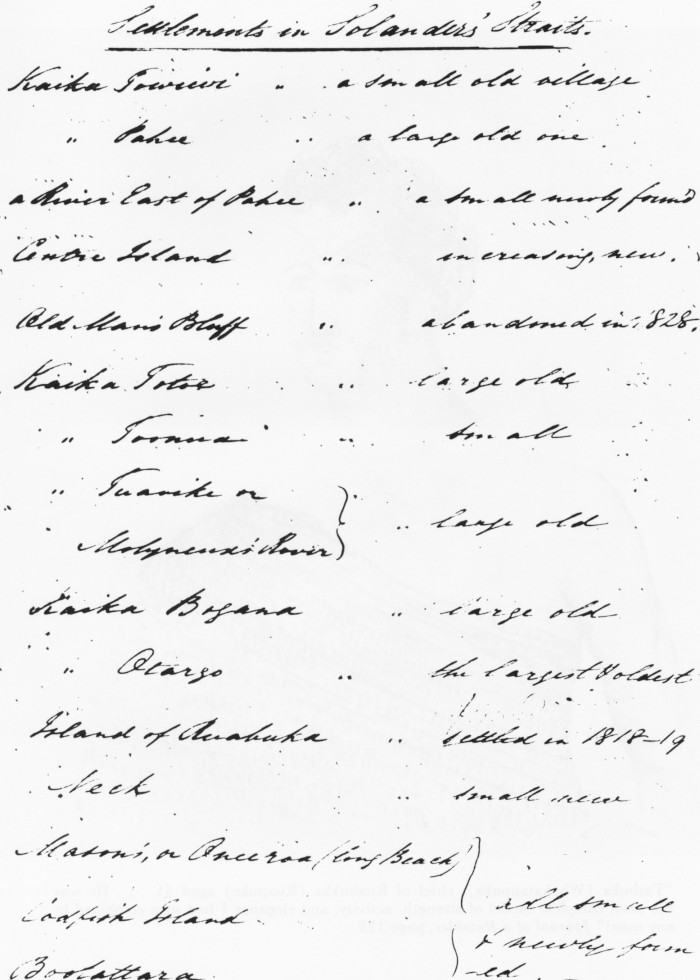 Settlements in Solander's Straits.
Kaika Towiwi " a small old village
" Pahee " a large old one
a River East of Pahee " a small newly form'd
Centre Island " increasing, new.
Old Man's Bluff " abandoned in 1828.
Kaika Totoe " large old
" " small
" Tuavike or
Molyneux's River } " large old
Kaika Bogana " large old
" Otargo " the largest & oldest
Island of Ruabuka " settled in 1818-19
Neck " small new
Mason's, or Oneeroa (long Beach)
Codfish Island } all small
& newly form
Boolattara -ed.